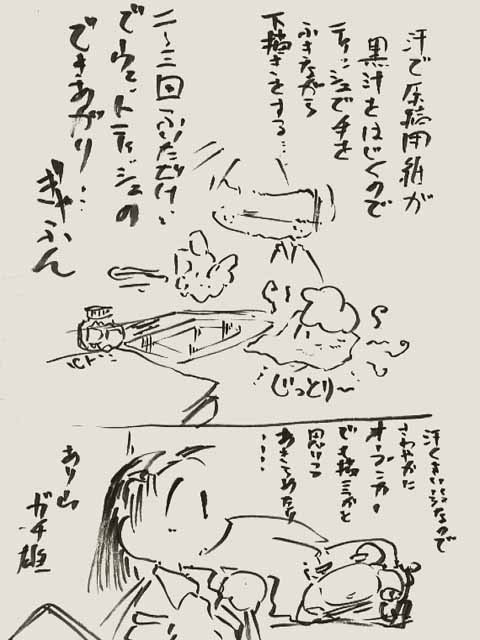 汗で原稿用紙が
黒汁をはじくので
ティッシュで手を
ふきながら
下描きをする…
二〜三回ふいただけ
でウェットティッシュの
できあがり…
ぎゃふん
じっとり〜
汗くさいページなので
さわやかに
オープンカー
でも描こうかと
思いつつ
あきらめたり
…
ありま
ガチ雄